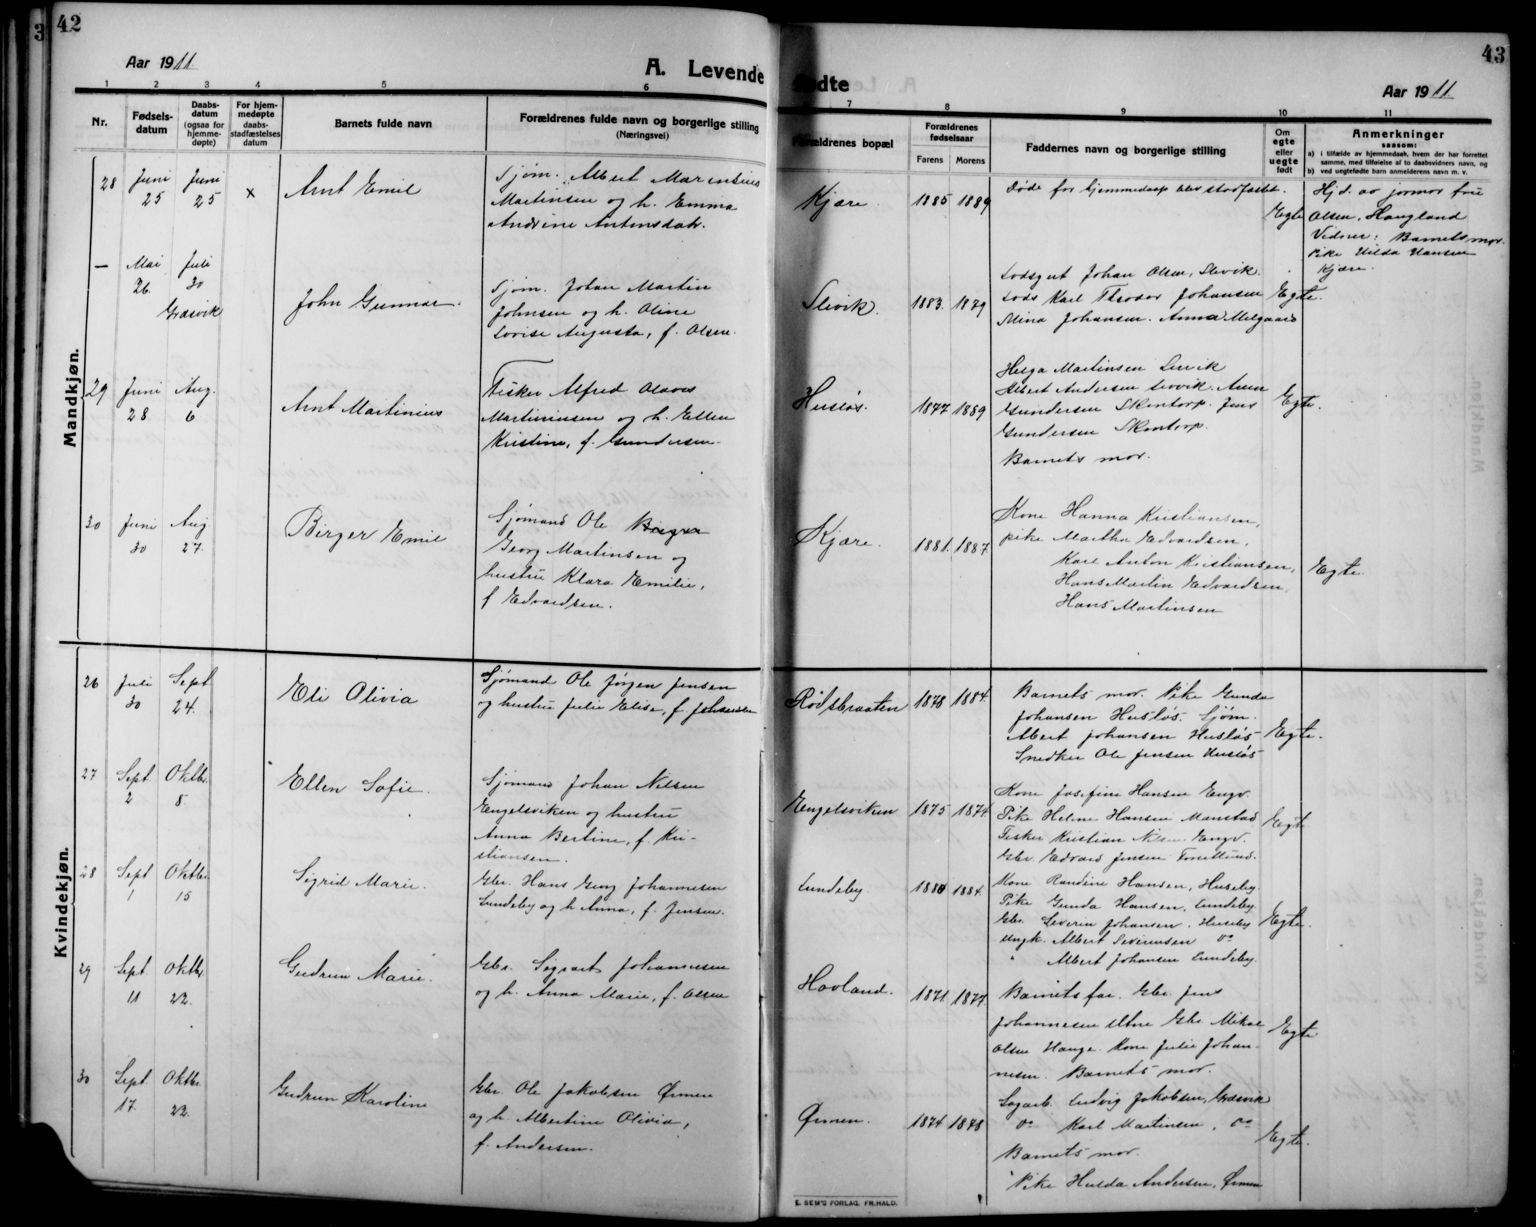 42
Aar 1911
A. Levende
1 2 3 4 5 6
Nr.
Fødsels-
datum
Daabs-
datum
(ogsaa for
hjemme-
døpte)
For hjem-
medøpte
daabs-
stadfæstelses
datum
Barnets fulde navn
Forældrenes fulde navn og borgerlige stilling
(Næringsvei)
Mandkjøn.
28 Juni Juni
25 25 x
Arnt Emil
Sjøm. Albert Marensius
Martinsen og h. Emma
Andrine Antonsdatr.
— Mai Juli
26. 30
Græsvik
John Gunnar.
Sjøm. Johan Martin
Johnsen og h. Oline
Lovise Augusta, f. Olsen.
29 Juni Aug.
28 6
Arnt Martinius
Fisker Alfred Olaves
Martiniussen og h. Ellen
Kristine, f. Gundersen.
30 Juni Aug
30 27.
Birger Emil
Sjømand Ole
Georg Martinsen og
hustru Klara Emilie,
f Edvardsen.
Kvindekjøn.
26 Juli Sept
30 24.
Eli Olivia
Sjømand Ole Jørgen Jensen
og hustru Julie Elise, f. Johansen
27 Sept. Oktbr.
2 8
Ellen Sofie.
Sjømand Johan Nilsen
Engelsviken og hustru
Anna Bertine, f. Kri-
stiansen.
28 Sept Oktbr.
1 15
Sigrid Marie.
Gbr. Hans Georg Johannesen
Lundeby og h Anna, f. Jensen.
29 Sept. Oktbr.
11 22.
Gudrun Marie.
Gbr. Sigvart Johannesen
og h. Anna Marie, f. Olsen
30 Sept. Oktbr.
17. 22.
Gudrun Karoline
Gbr. Ole Jakobsen Ørmen
og h. Albertine Olivia,
f. Andersen.
43
fødte
Aar 1911
7 8 9 10 11
Forældrenes bopæl
Forældrenes
fødselsaar
Farens Morens
Faddernes navn og borgerlige stilling
Om
egte
eller
uegte
født
Anmerkninger
saasom:
a) i tilfælde av hjemmedaab, hvem der har forrettet
samme, med tilføielse af to daabsvidners navn, og
b) ved uegtefødte barn anmelderens navn m. v.
Kjære. 1885 1889
Døde før hjemmedaap blev stadfæstet.
Egte
Hjd. av jormor fru
Olsen, Haugland
Vidner: Barnets mor.
Pike Hilda Hansen
Kjære.
Slevik. 1883. 1879
Lodsgut Johan Olsen, Slevik.
Lods Karl Theodor Johansen
Mina Johansen. Anna Melgaard
Egte.
Husløs. 1877 1889
Helga Martinsen Lervik
Albert Andersen Lervik. Anna
Gundersen Skontorp. Jens
Gundersen Skontorp.
Barnets mor.
Egte.
Kjære. 1881. 1887
Kone Hanna Kristiansen,
pike Martha Edvardsen,
Karl Anton Kristiansen,
Hans Martin Edvardsen,
Hans Martinsen
Egte.
Rødsbraaten 1878 1884.
Barnets mor. Pike Gunda
Johansen Husløs. Sjøm.
Albert Johansen Husløs
Snedker Ole Jensen Husløs
Egte.
Engelsviken 1875 1874
Kone Josefine Hansen Engv.
Pike Helene Hansen Manstad
Fisker Kristian Nilsen Engv.
Gbr. Edvard Jensen
Egte
Lundeby. 1880 1884.
Kone Randine Hansen, Huseby.
Pike Gunda Hansen, Lundeby.
Gbr. Severin Johansen. Huseby
Ungk. Albert Severinsen do
" Albert Johansen Lundeby.
Egte.
Hovland. 1871 1877
Barnets far. Gbr. Jens
Johannesen Gbr Mikal
Olsen Hauge. Kone Julie Johan-
nesen. Barnets mor.
Egte
Ørmen. 1874 1878
Sagarb. Ludvig Jakobsen, Græsvik
do Karl Martinsen, do
Barnets mor.
Pike Hulda Andersen, Ørmen
Egte.
E. SEM'S FORLAG, FR.HALD.